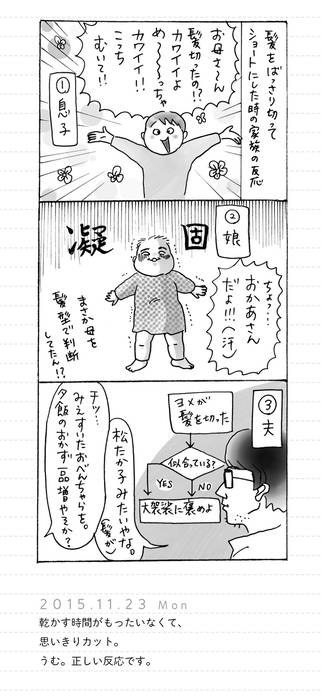 髪をばっさり切って
ショートにした時の家族の反応
①息子
お母さ〜ん
髪切ったの!?
カワイイよ
め〜〜〜っちゃ
カワイイ!!
こっち
むいて!!
②娘
凝固
ちょっ…
おかあさん
だよ!!!(汗)
まさか母を
髪型で判断
してたん!?
③夫
ヨメが
髪を切った
似合っている?
YES
NO
大袈裟に褒めよ
松たか子みたいやな。
(髪が)
チッ…
みえすいたおべんちゃらを。
夕飯のおかず一品増やそか?
2015.11.23 Mon
乾かす時間がもったいなくて、
思いきりカット。
うむ。正しい反応です。